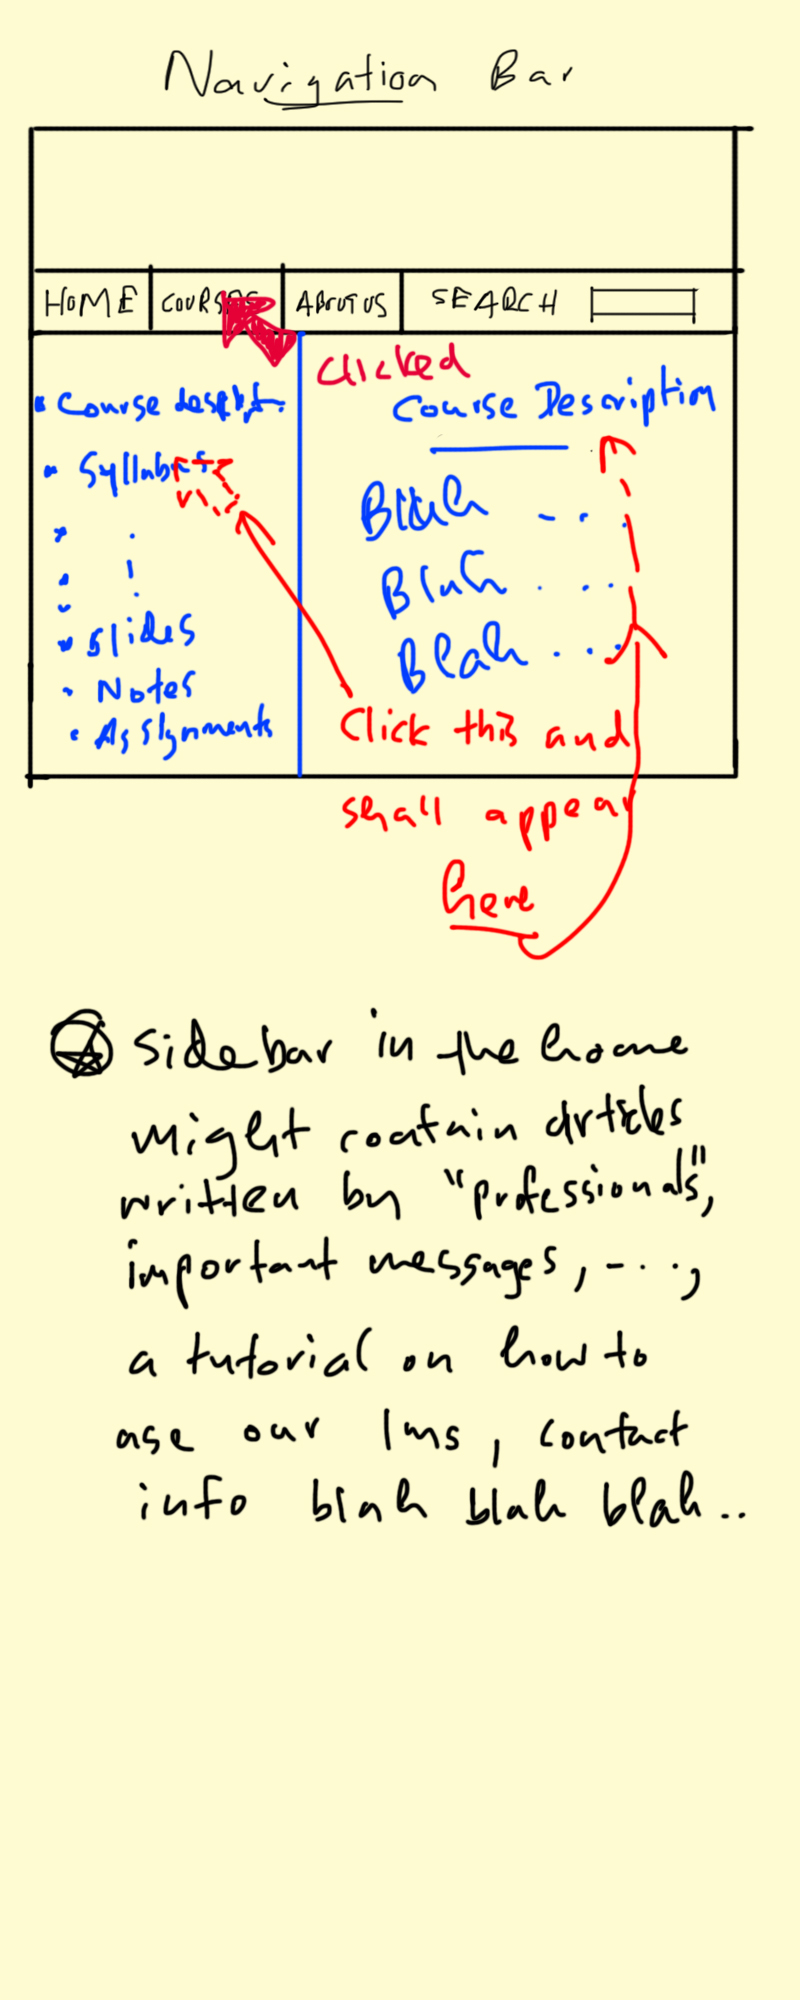 Navigation Bar
HOME COURSES ABOUT US SEARCH
Clicked
• Course descpt.
• Syllabus
• .
• .
• .
• Slides
• Notes
• Assignments
Course Description
Blah - . .
Blah . . .
Blah . . .
Click this and
shall appear
here
Sidebar in the home
might contain articles
written by "professionals",
important messages, - . . ,
a tutorial on how to
use our lms, contact
info blah blah blah ..